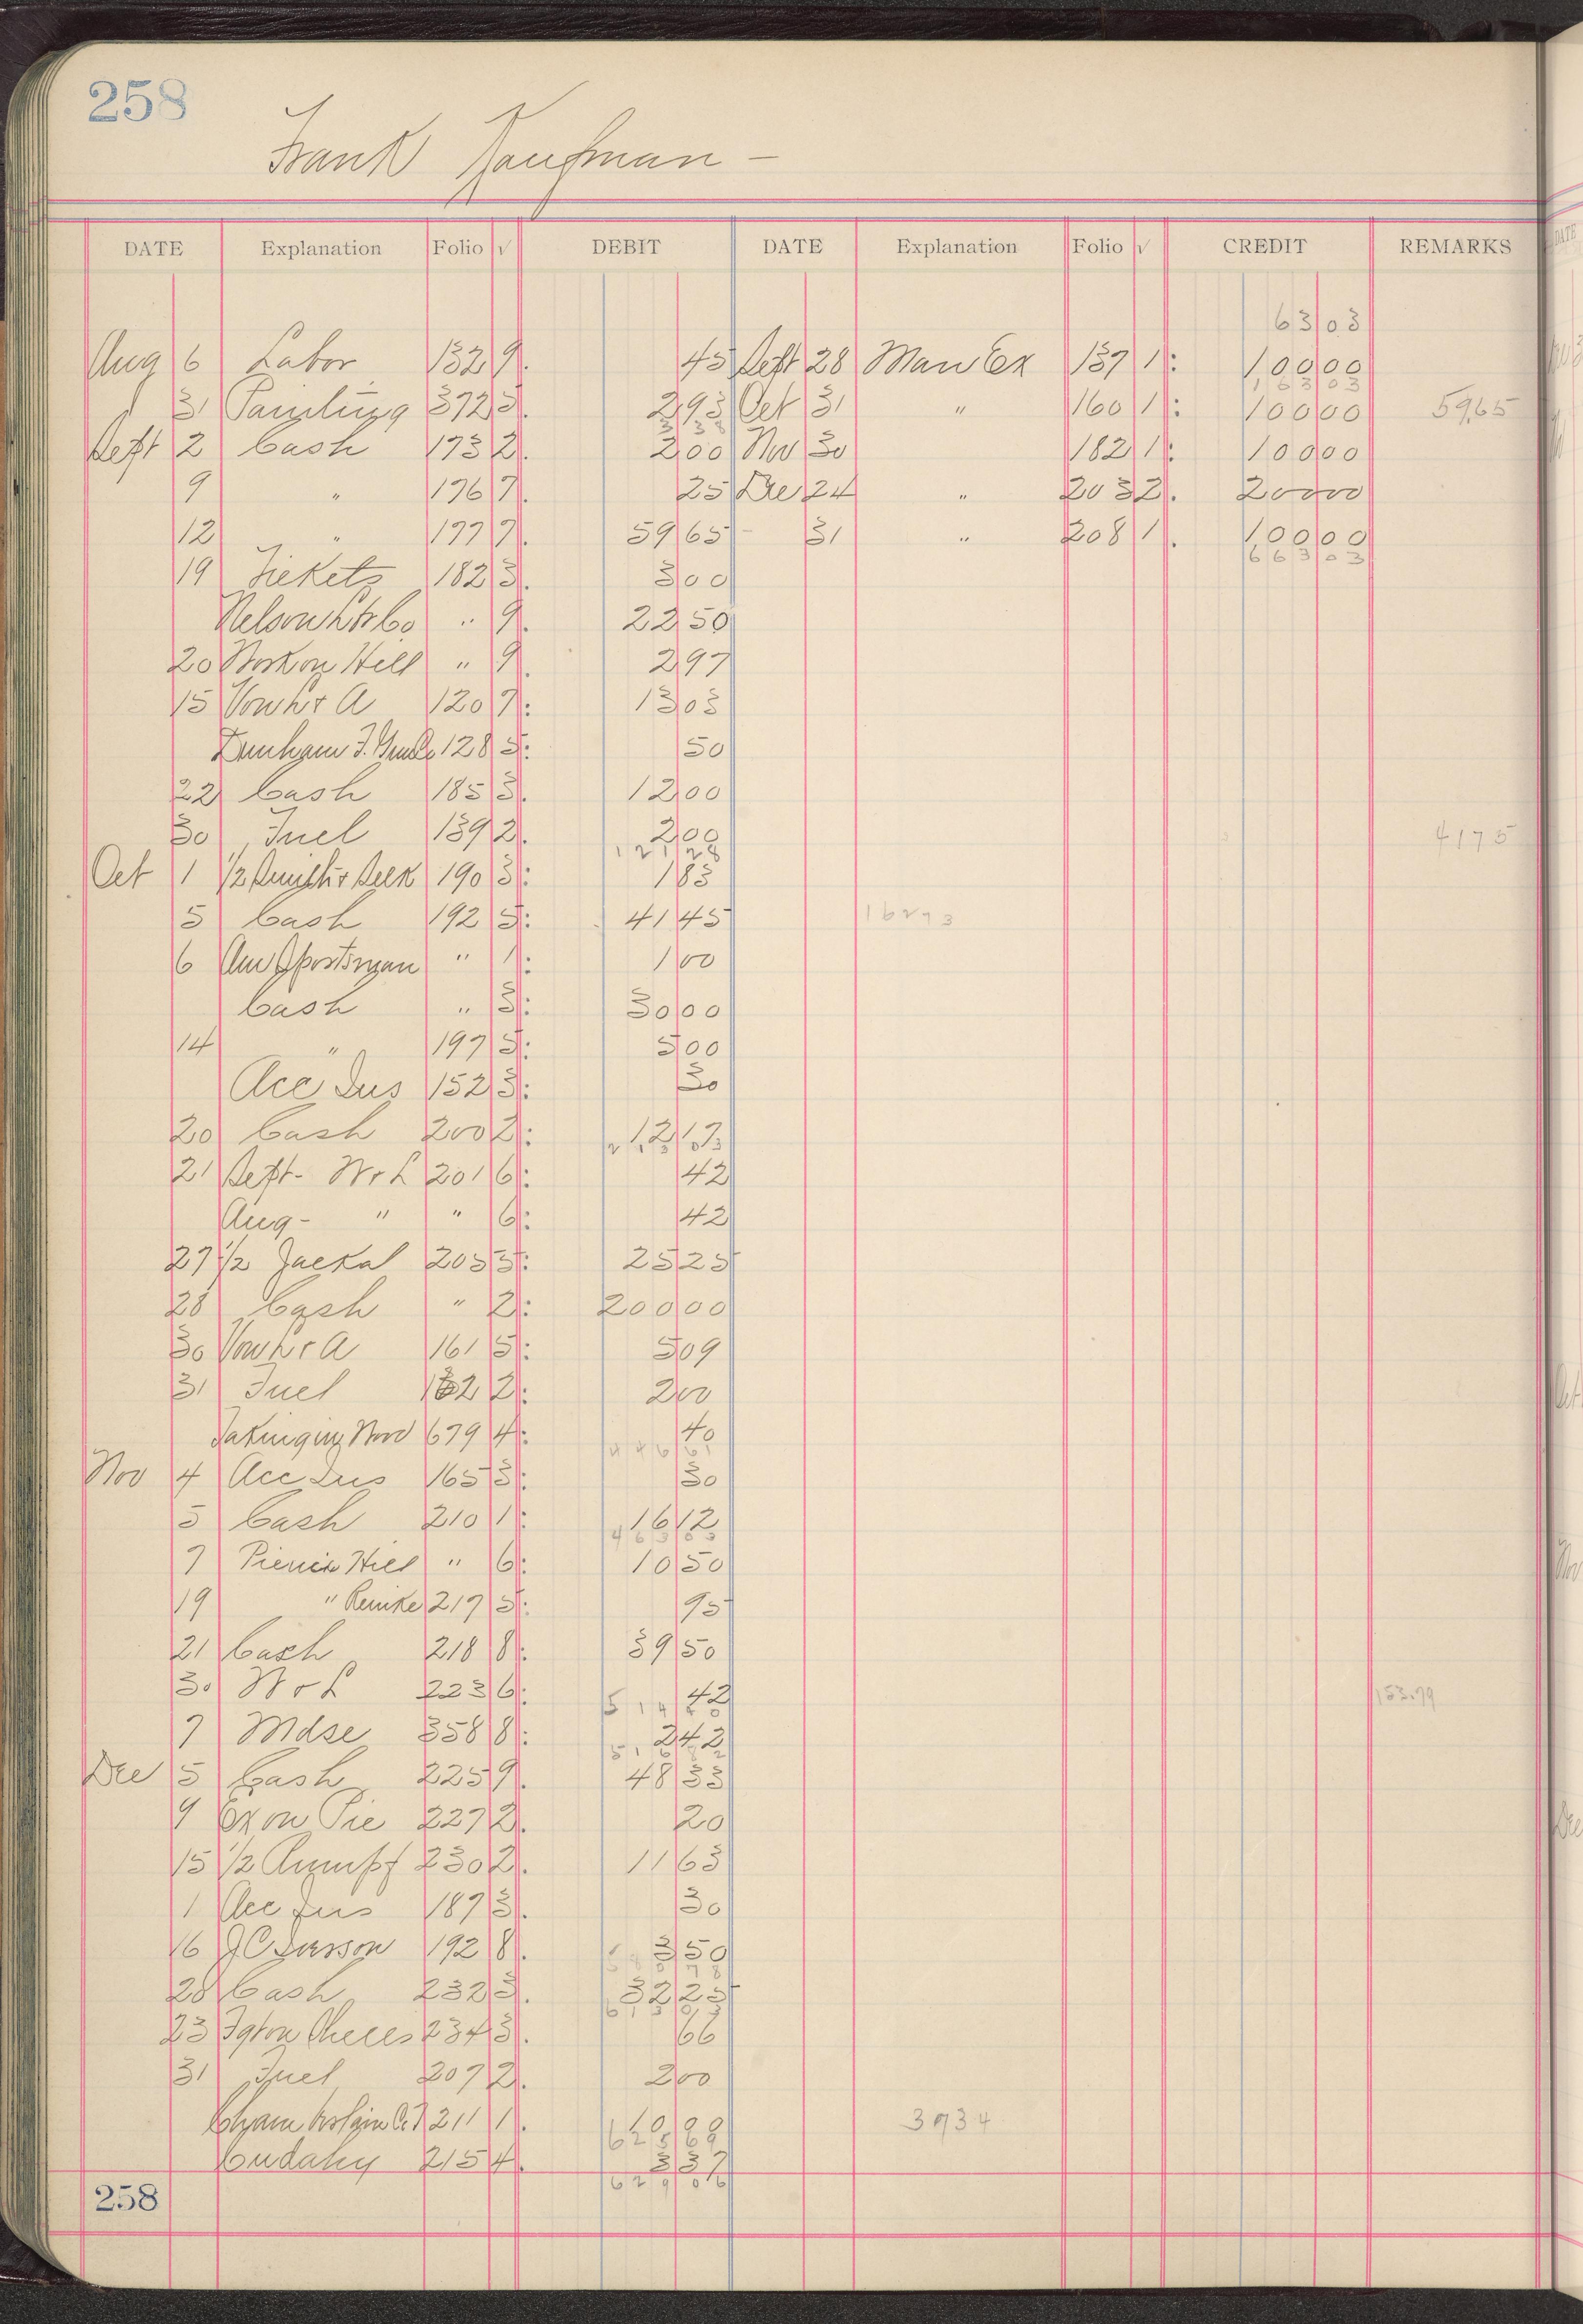 258
Frank Kaufman -
DATE Explanation Folio √ DEBIT DATE Explanation Folio √ CREDIT REMARKS
63 03
Aug 6 Labor 132 9. 45 Sept 28 Man Ex 137 1: 100 00
163 03
31 372 3. 2 93 Oct 31 " 160 1: 100 00 59.65
3 38
Sept 2 Cash 173 2. 2 00 Nov 30 182 1: 100 00
9 " 176 7. 25 Dec 24 " 203 2. 200 00
12 " 177 7. 59 65 - 31 " 208 1. 100 00
663 03
19 Tickets 182 3. 3 00
Nelson " 9. 22 50
20 Hill " 9. 2 97
15 Von L & A 120 7: 13 03
Dunham 128 5: 50
22 Cash 185 3. 12 00
30 Fuel 139 2. 2 00 4175
121 28
Oct 1 1/2 190 3: 1 83
5 Cash 192 5: 41 45 16293
6 Am Sportsman " 1: 1 00
Cash " 3: 30 00
14 " 197 5: 5 00
Acc Ins 152 3: 30
20 Cash 200 2: 12 17
21 Sept - W & L 201 6: 42
Aug - " " 6: 42
27 1/2 Jackal 205 5: 25 25
28 Cash " 2: 200 00
30 Von L & A 161 5: 5 09
31 Fuel 2: 2 00
Nov 679 4: 40
446 61
Nov 4 Acc Ins 165 3: 30
5 Cash 210 1: 16 12
463 03
7 Picnic Hill " 6: 10 50
19 " Reinke 217 5: 95
21 Cash 218 8: 39 50
30 W & L 223 6: 42 153.79
514 40
7 Mdse 358 8: 2 42
516 82
Dec 5 Cash 225 9. 48 33
9 Ex on Pic 227 2. 20
15 1/2 Rumpf 230 2. 11 63
1 Acc Ins 187 3. 30
16 J C Iverson 192 8. 3 50
580 78
28 Cash 232 3. 32 25
613 03
23 234 3. 66
31 Fuel 207 2. 2 00
211 1. 10 00 3934
625 69
Cudahy 215 4. 3 37
629 06
258